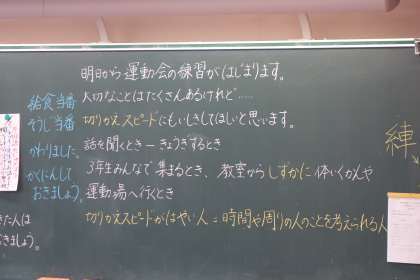 明日から運動会の練習がはじまります。
大切なことはたくさんあるけれど……
切りかえスピードにもいしきしてほしいと思います。
話を聞くとき ー きょうぎするとき
3年生みんなで集まるとき、教室からしずかに体いくかんや
運動場へ行くとき
切りかえスピードがはやい人=時間や周りの人のことを考えられる人
給食当番
そうじ当番
かわりました。
かくにんして
おきましょう。
きた人は
おきましょう。
練